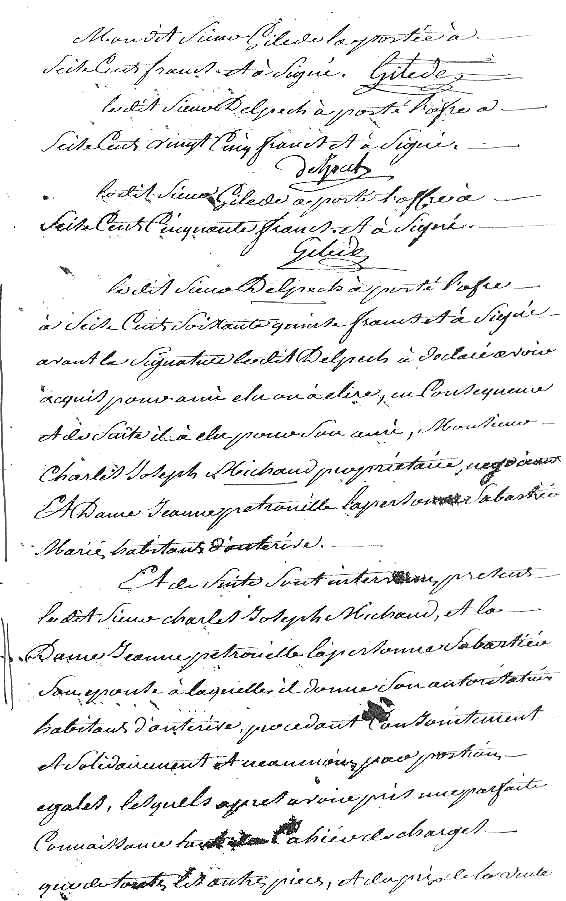 Mondit Sieur Gilede la portée à
Seite Cent francs et à Signé. Gilede
ledit Sieur Delpech à porté l'ofre a
Seite Cent vingt Cinq francs et à Signé.
Delpech
ledit Sieur Gilede a porté l'offre à
Seite Cent Cinquante francs et à Signé.
Gilede
ledit Sieur Delpech à porté l'ofre
à Seite Cent Soixante quinte francs et à Signé
avant la Signature ledit Delpech à declaré avoir
acquis pour ami elu ou à elire, en Consequence
et de Suite il à elu pour Son ami, Monsieur
Charles Joseph Michaud propriétaire, negociant
Et Dame Jeanne petronille lapersonne Sabastiée
Mariés habitans d'auterive.
Et de Suite Sont intervenus, presens
ledit Sieur charles Joseph Michaud, et la
Dame Jeanne petronille lapersonne Sabastiée
Son epouse à laquelle il donne Son autorisation
habitans d'auterive, procedant Conjointement
et Solidairement et neanmoins pour portions
egales, lesquels apres avoir pris une parfaite
Connaissance tant du Cahier de charges
que de toutes les autres pieces, et du prix de la vente